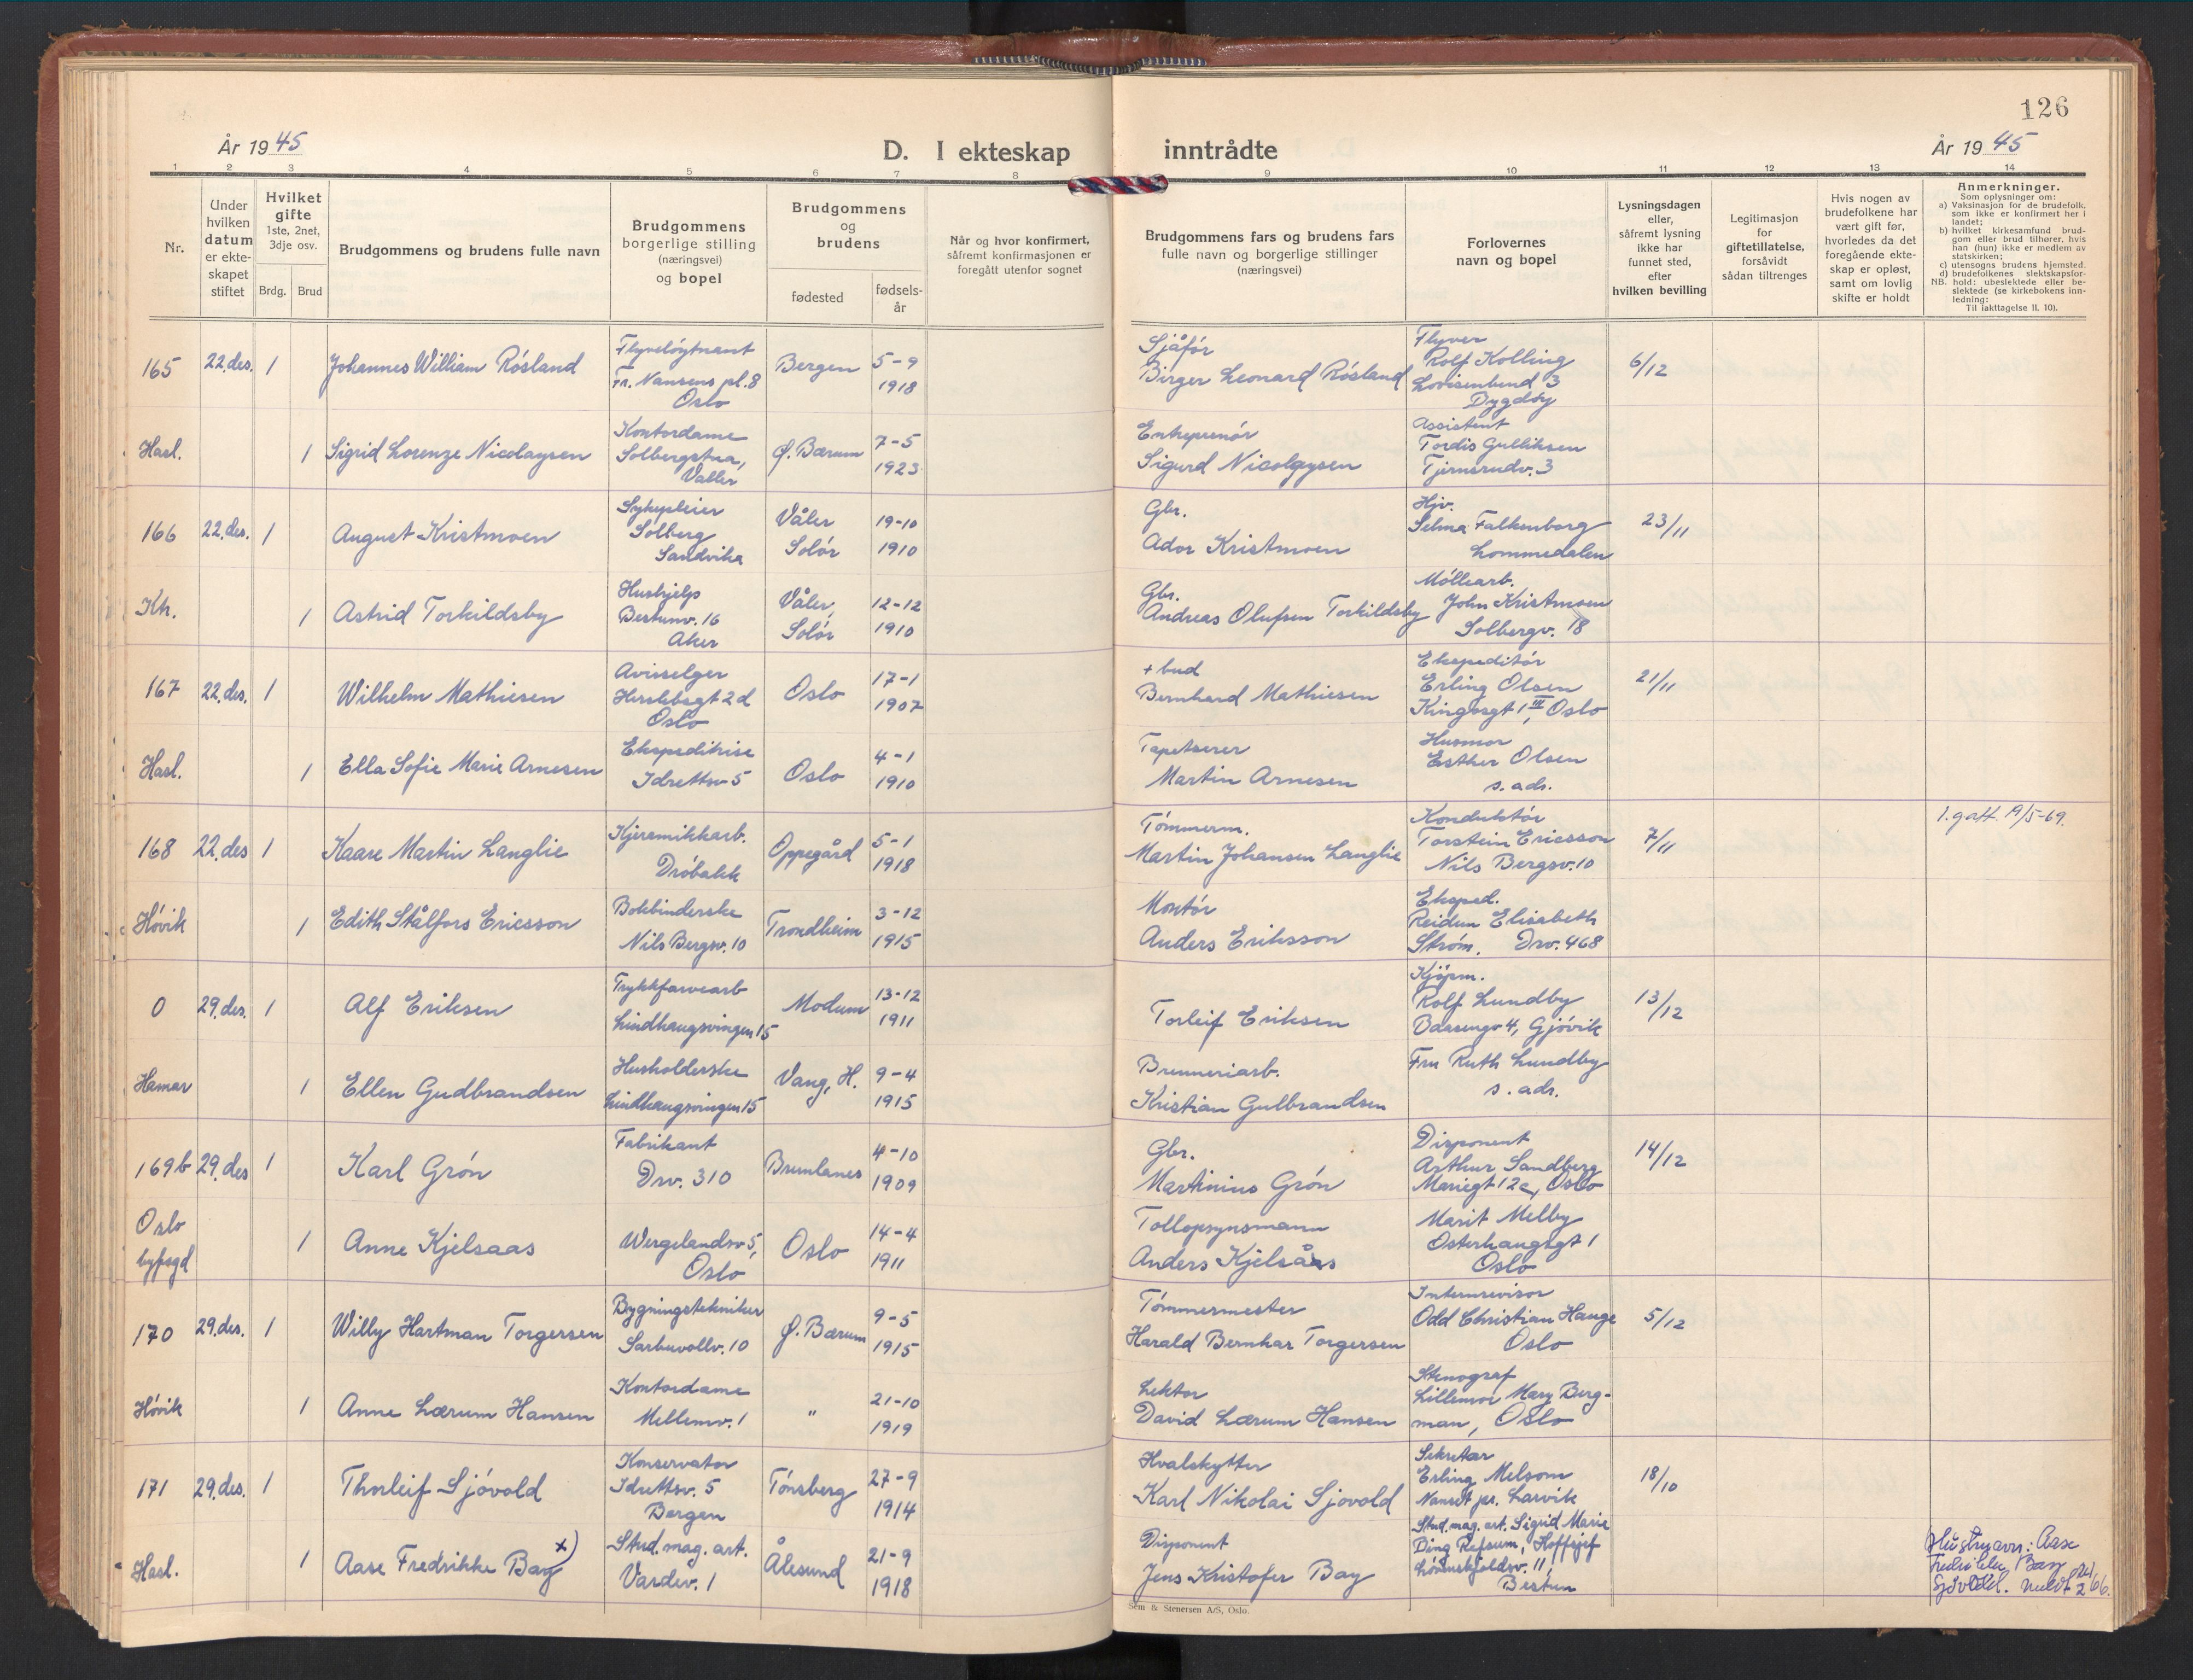 126
År 1945
D. I ekteskap inntrådte
År 1945
1 2 3 4 5 6 7 8 9 10 11 12 13 14
Nr.
Under hvilken datum er ekteskapet stiftet
Hvilket gifte 1ste, 2net, 3dje osv.
Brdg. Brud
Brudgommens og brudens fulle navn
Brudgommens borgerlige stilling (næringsvei) og bopel
Brudgommens og brudens
fødested
fødselsår
Når og hvor konfirmert, såfremt konfirmasjonen er foregått utenfor sognet
Brudgommens fars og brudens fars fulle navn og borgerlige stillinger (næringsvei)
Forlovernes navn og bopel
Lysningsdagen eller, såfremt lysning ikke har funnet sted, efter hvilken bevilling
Legitimasjon for giftetillatelse, forsåvidt sådan tiltrenges
Hvis nogen av brudefolkene har vært gift før, hvorledes da det foregående ekteskap er opløst, samt om lovlig skifte er holdt
Anmerkninger.
Som oplysninger om:
a) Vaksinasjon for de brudefolk, som ikke er konfirmert her i landet;
b) hvilket kirkesamfund brudgom eller brud tilhører, hvis han (hun) ikke er medlem av statskirken;
c) utensogns brudens hjemsted.
d) brudefolkenes slektskapsforhold: ubeslektede eller beslektede (se kirkebokens innledning:
NB.
Til iakttagelse II. 10).
165 22.des. 1 Johannes William Rósland Flyveløytnant Fr. Nansens pl. 8 Oslo Bergen 5-9 1918 Sjåfór Birger Leonard Rósland Flyver Rolf Kolling Lovisenlund 3 Bygdöy 6/12
Hasl. 1 Sigrid Lorenze Nicolaysen Kontordame Solbergstua, Valler Ø. Bærum 7-5 1923 Entreprenór Sigurd Nicolaysen Assistent Tordis Gulliksen Tjernsrudv. 3
166 22.des. 1 August Kristmoen Sykepleier Solberg Sandvika Våler Solór 19-10 1910 Gbr. Ador Kristmoen Hjv. Selma Falkenborg Lommedalen 23/11
Kh. 1 Astrid Torkildsby Hushjelp Bestumv. 16 Aker Våler, Solór 12-12 1910 Gbr. Andreas Olufsen Torkildsby Móllearb. John Kristmoen Solbergv. 18
167 22.des. 1 Wilhelm Mathiesen Avisselger Herslebsgt 2d Oslo Oslo 17-1 1907 + bud Bernhard Mathiesen Ekspeditór Erling Olsen Kingosgt 1 III, Oslo 21/11
Hasl. 1 Ella Sofie Marie Arnesen Ekspeditrise Idrettsv 5 Oslo 4-1 1910 Tapetserer Martin Arnesen Husmor Esther Olsen s. ads.
168 22.des 1 Kaare Martin Langlie Kjeramikkarb. Dróbakk Oppegård 5-1 1918 Tómmerm. Martin Johansen Langlie Konduktór Torstein Ericsson Nils Bergsv. 10 7/11 1. g att. 19/5-69.
Hóvik 1 Edith Stålfors Ericsson Bokbinderske Nils Bergsv. 10 Trondheim 3-12 1915 Montór Anders Eriksson Eksped. Reidun Elisabeth Stróm. Drv. 468
0 29.des. 1 Alf Eriksen Trykkfarvearb Lindhaugsvingen 15 Modum 13-12 1911 Torleif Eriksen Kjópm. Rolf Lundby Bassengv 4, Gjóvik 13/12
Hamar 1 Ellen Gudbrandsen Husholderske Lindhaugsvingen 15 Vang, H. 9-4 1915 Brenneriarb. Kristian Gulbrandsen Fru Ruth Lundby s. ads.
169b 29.des 1 Karl Grón Fabrikant Drv. 310 Brunlanes 4-10 1909 Gbr. Martinius Grón Disponent Arthur Sandberg Mariegt 12c, Oslo 14/12
Oslo byfogd 1 Anne Kjelsaas Wergelandsv 5, Oslo Oslo 14-4 1911 Tollopsynsmann Anders Kjelsås Marit Melby Osterhausgt 1 Oslo
170 29.des. 1 Willy Hartman Torgersen Bygningstekniker Sarbuvollv. 10 Ø. Bærum 9-5 1915 Tómmermester Harald Bernhar Torgersen Internrevisor Odd Christian Hauge Oslo 5/12
Hóvik 1 Anne Lærum Hansen Kontordame Mellemv. 1 " 21-10 1919 Lektor David Lærum Hansen Stenograf Lillemor Mary Bergman, Oslo
171 29.des. 1 Thorleif Sjóvold Konservator Idrettsv. 5 Bergen Tónsberg 27-9 1914 Hvalskytter Karl Nikolai Sjovold Sekretær Erling Melsom Nanset pr. Larvik 18/10
Hasl. 1 Aase Fredrikke Bay x) Stud. mag. art. Vardev. 1 Ålesund 21-9 1918 Disponent Jens Kristofer Bay Stud. mag. art. Sigrid Marie Ding Refsum, Hoffsjef Lóvenskjoldsv. 11, Bestun Hustrunavn: Aase Fredrikke Bay Sjóvold.
Sem & Stenersen A/S, Oslo.